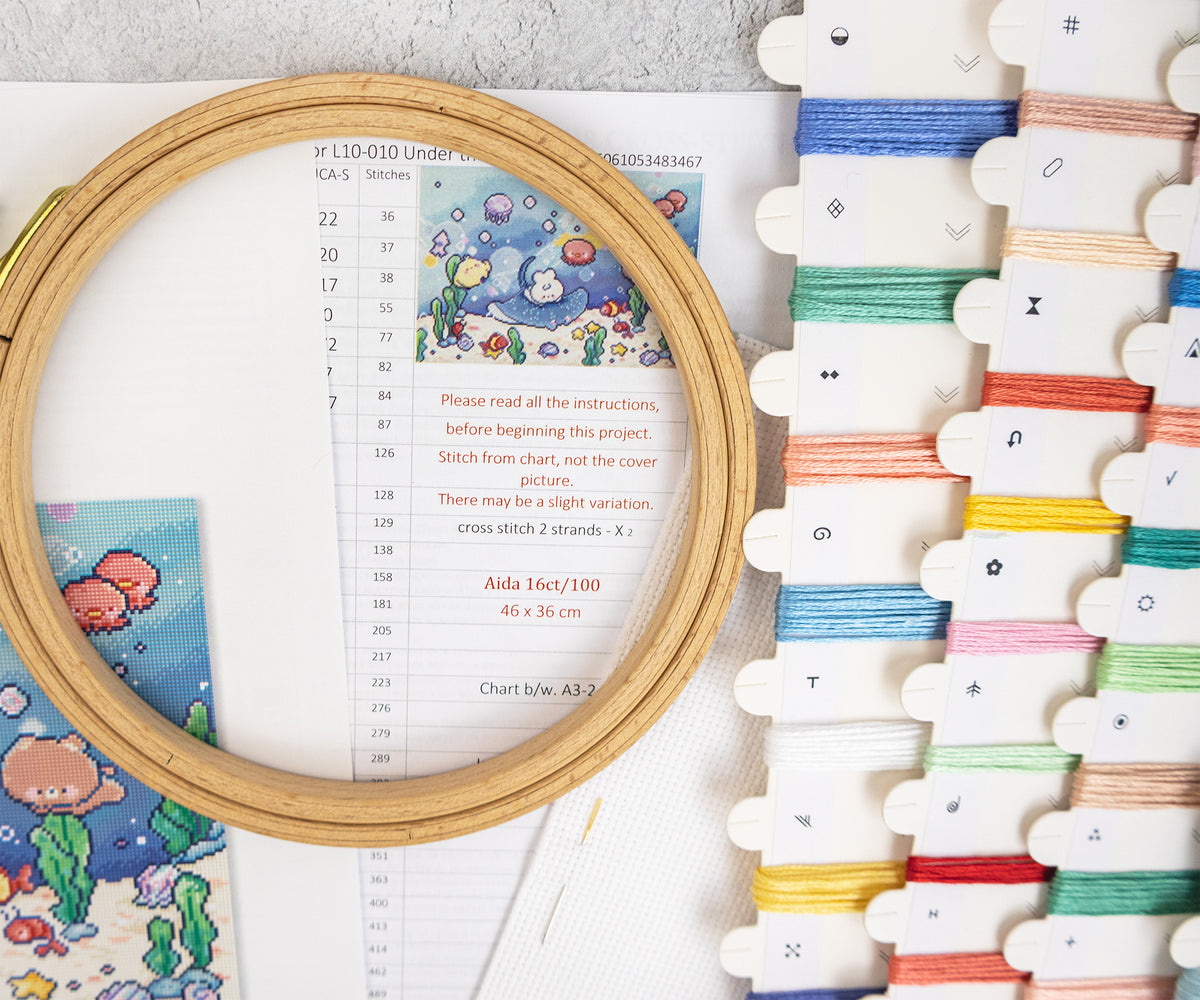 or L10-010 Under
061053483467
JCA-S Stitches
22 36
20 37
17 38
0 55
2 77
7 82
7 84
87
126
128
129
138
158
181
205
217
223
276
279
289
351
363
400
413
414
462
489
Please read all the instructions,
before beginning this project.
Stitch from chart, not the cover
picture.
There may be a slight variation.
cross stitch 2 strands - X 2
Aida 16ct/100
46 x 36 cm
Chart b/w. A3-2